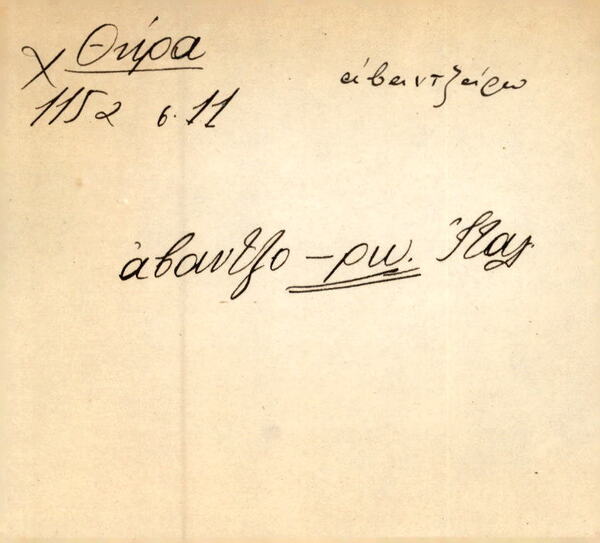 Χ Θήρα
1152 σ. 11
ἀβαντζάρω
ἀβαντζο -ρω. Ἰταλ